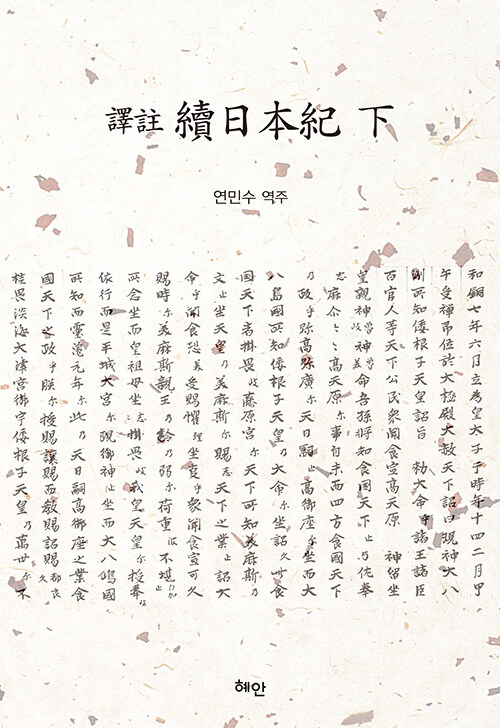 譯註 續日本紀 下
연민수 역주
和銅七年六月立爲皇太子于時年十四二月甲
午受禪即位於大極殿大赦天下詔曰現神大八
洲所知倭根子天皇詔旨 勅大命乎諸王諸臣
百官人等天下公民衆聞食宣高天原 神留坐
皇親神魯岐神魯美命吾孫將知食國天下止与佐奉
志麻尓々々高天原尓事自米而四方食國天下
乃政乎弥高弥廣尓天日嗣止高御座乎坐而大
八嶋國所知倭根子天皇乃大命尓坐詔久此食
國天下者掛畏岐藤原宮尓天下所知美麻斯乃
父止坐天皇乃美麻斯尓賜志天下之業止詔大
命乎聞食恐美受賜懼理坐事乎衆聞食宣可久
賜時尓美麻斯親王乃齡乃弱尓荷重波不堪自加止
所念坐而皇祖母坐志掛畏岐我皇天皇尓授奉岐
依行而是平城大宮尓現御神止坐而大八嶋國
所知而靈龜元年尓此乃天日嗣高御座之業食
國天下之政乎朕尓授賜讓賜而教賜詔賜都良久
挂畏淡海大津宮御宇倭根子天皇乃萬世尓不
혜안